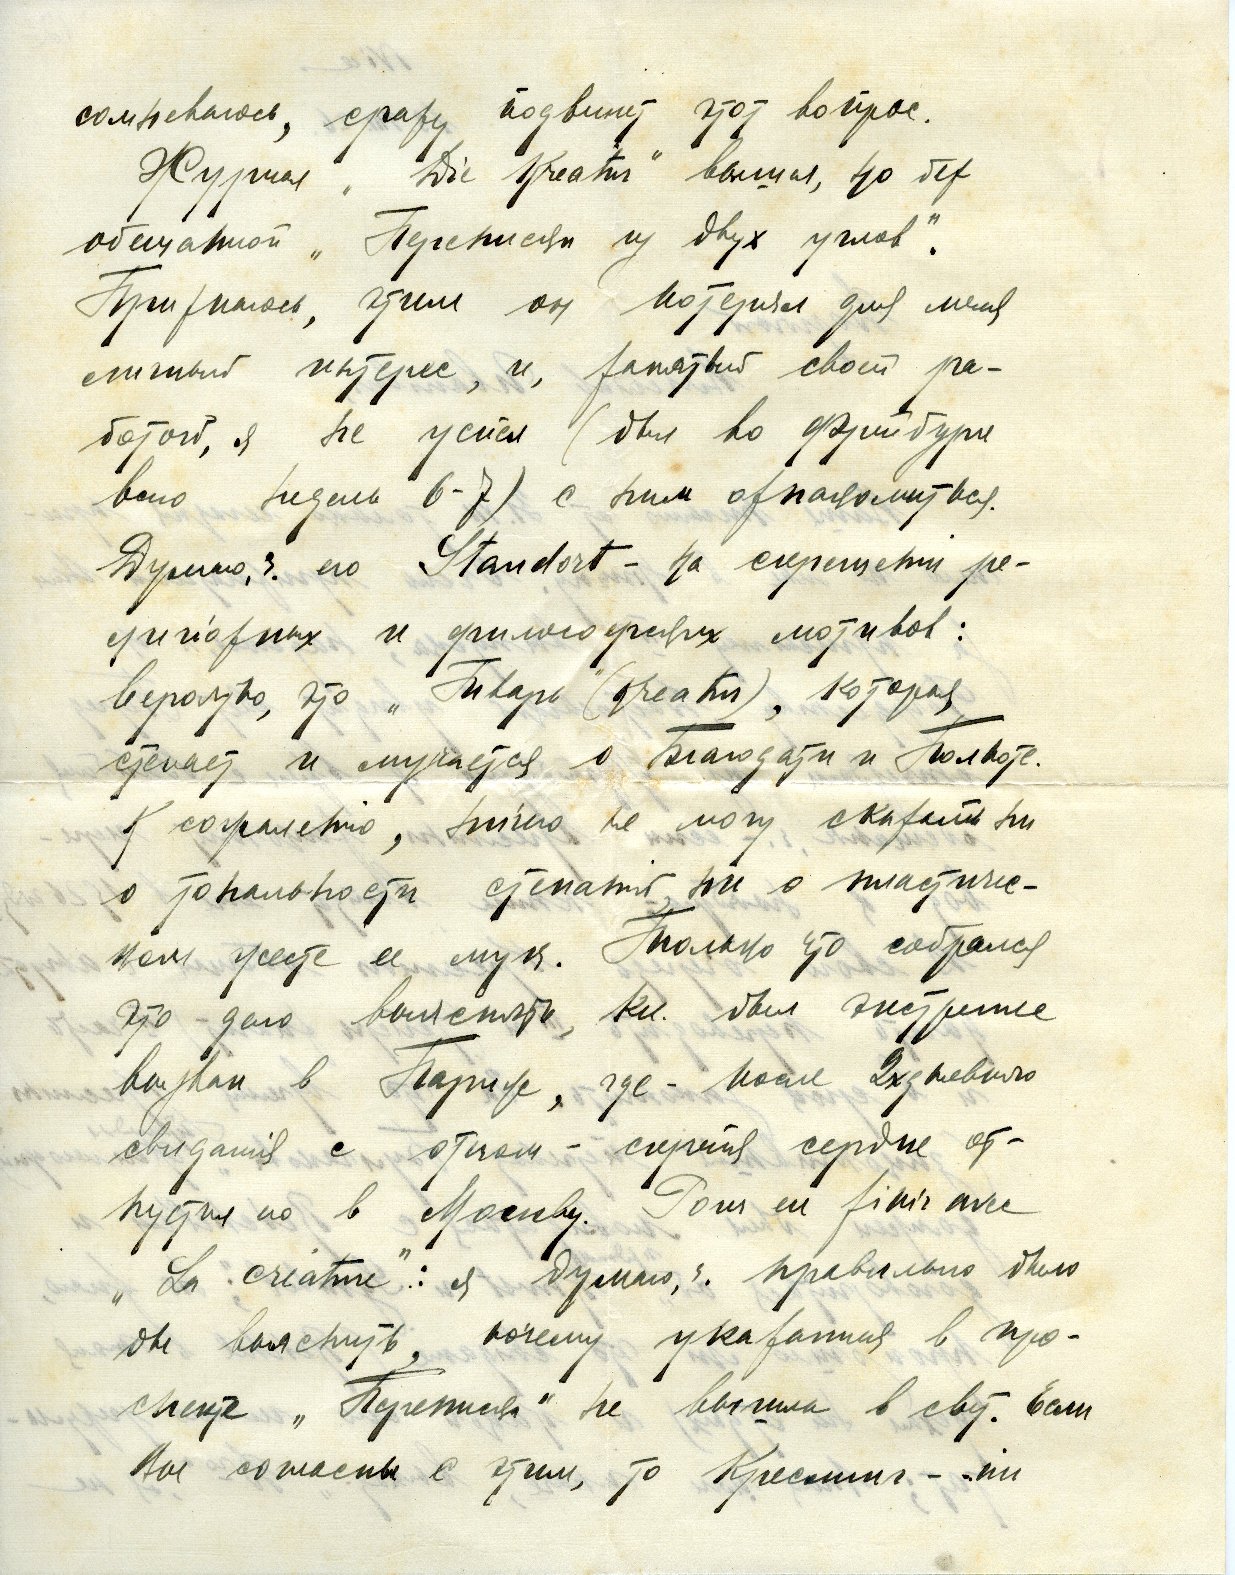 сомневаюсь, сразу подвинет этот вопрос.
Журнал „Die Kreatur“ вышел, но без
обещанной „Переписки из двух углов“.
Признаюсь, этим он потерял для меня
личный интерес, и, занятый своей ра-
ботой, я не успел (был во Фрейбурге
всего недель 6-7) с ним ознакомиться.
Думаю, ч. его Standort – на скрещении ре-
лигіозных и философских мотивов:
вероятно, это „Тварь“ (Kreatur), которая
стенает и мучается о Благодати и Полноте.
К сожалению, ничего не могу сказать ни
о тональности стенаний, ни о пластичес-
ком жесте ее мук. Только что собрался
это дело выяснять, как был экстренно
вызван в Париж, где – после 2хдневного
свидания с отцом – скрепя сердце от-
пустил его в Москву. Pour en finir avec
„La créature“: я думаю, ч. правильно было
бы выяснить, почему указанная в про-
спекте „Переписка“ не вышла в свет. Если
Вы согласны с этим, то Креслинг – -ли